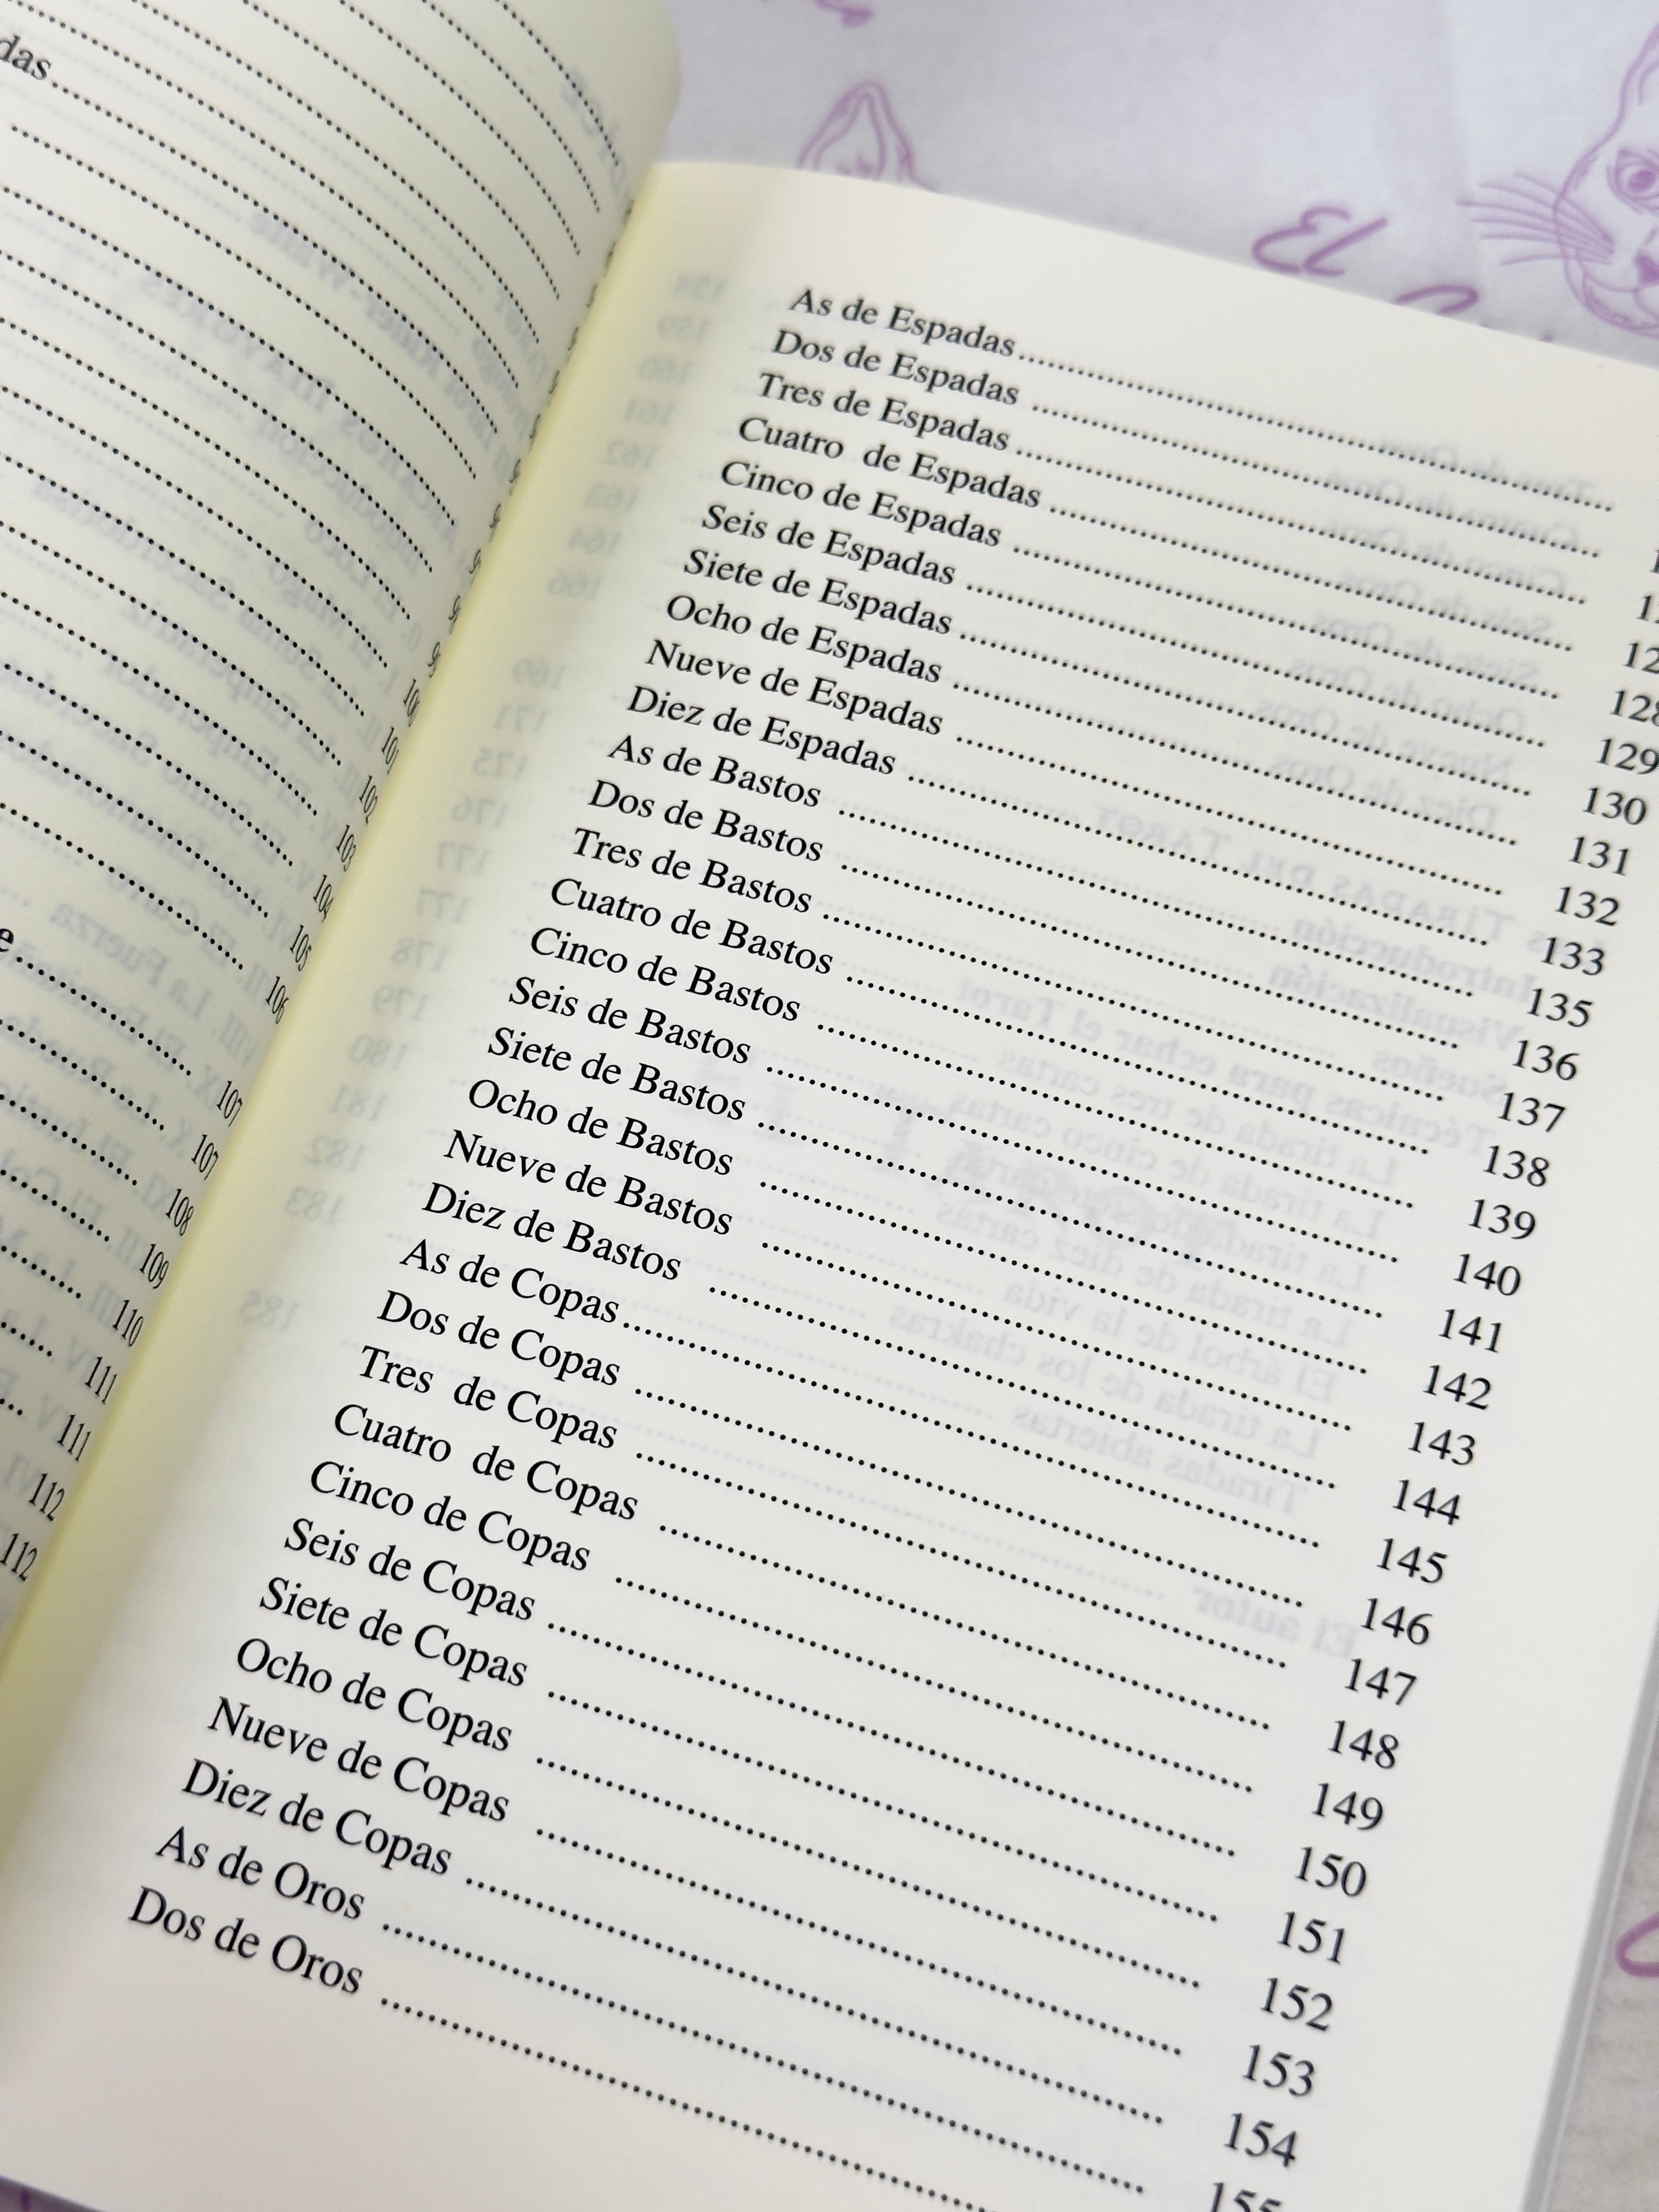 das
100
101
102
103
104
105
106
e 107
107
108
109
110
111
111
112
112
As de Espadas
Dos de Espadas
Tres de Espadas
Cuatro de Espadas
Cinco de Espadas 128
Seis de Espadas 129
Siete de Espadas 130
Ocho de Espadas 131
Nueve de Espadas 132
Diez de Espadas 133
As de Bastos 135
Dos de Bastos 136
Tres de Bastos 137
Cuatro de Bastos 138
Cinco de Bastos 139
Seis de Bastos 140
Siete de Bastos 141
Ocho de Bastos 142
Nueve de Bastos 143
Diez de Bastos 144
As de Copas 145
Dos de Copas 146
Tres de Copas 147
Cuatro de Copas 148
Cinco de Copas 149
Seis de Copas 150
Siete de Copas 151
Ocho de Copas 152
Nueve de Copas 153
Diez de Copas 154
As de Oros 155
Dos de Oros
El